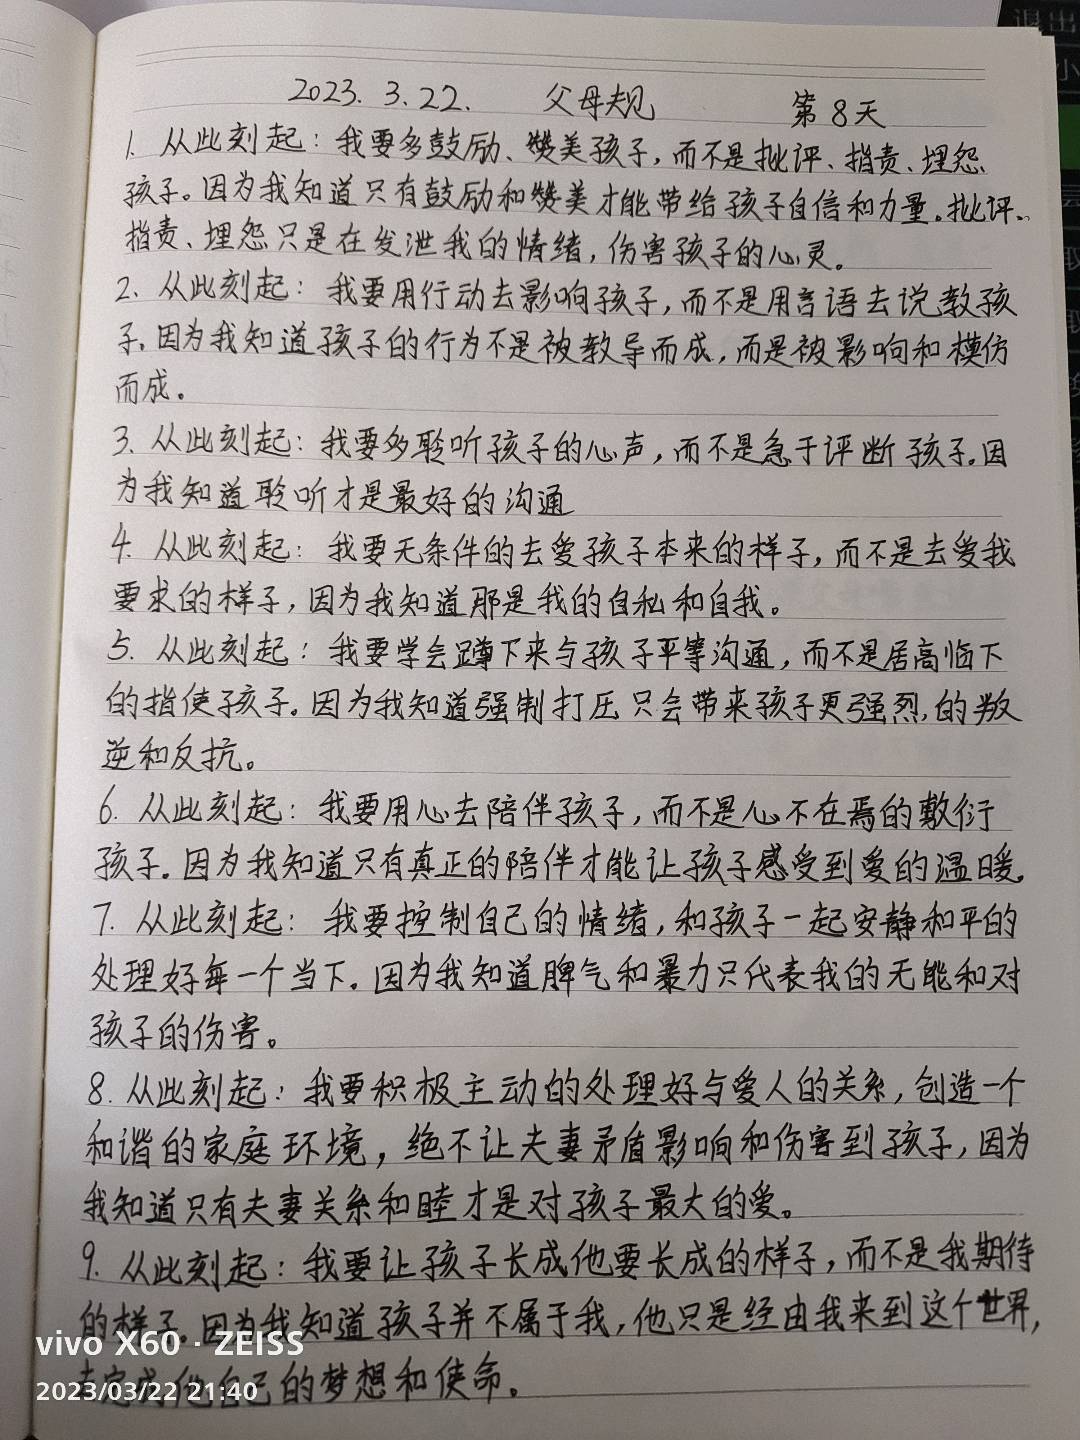 2023. 3. 22. 父母规 第8天
1. 从此刻起：我要多鼓励、赞美孩子，而不是批评、指责、埋怨
孩子。因为我知道只有鼓励和赞美才能带给孩子自信和力量。批评、
指责、埋怨只是在发泄我的情绪，伤害孩子的心灵。
2. 从此刻起：我要用行动去影响孩子，而不是用言语去说教孩
子。因为我知道孩子的行为不是被教导而成，而是被影响和模仿
而成。
3. 从此刻起：我要多聆听孩子的心声，而不是急于评断孩子。因
为我知道聆听才是最好的沟通
4. 从此刻起：我要无条件的去爱孩子本来的样子，而不是去爱我
要求的样子，因为我知道那是我的自私和自我。
5. 从此刻起：我要学会蹲下来与孩子平等沟通，而不是居高临下
的指使孩子。因为我知道强制打压只会带来孩子更强烈的叛
逆和反抗。
6. 从此刻起：我要用心去陪伴孩子，而不是心不在焉的敷衍
孩子。因为我知道只有真正的陪伴才能让孩子感受到爱的温暖。
7. 从此刻起：我要控制自己的情绪，和孩子一起安静和平的
处理好每一个当下。因为我知道脾气和暴力只代表我的无能和对
孩子的伤害。
8. 从此刻起：我要积极主动的处理好与爱人的关系，创造一个
和谐的家庭环境，绝不让夫妻矛盾影响和伤害到孩子，因为
我知道只有夫妻关系和睦才是对孩子最大的爱。
9. 从此刻起：我要让孩子长成他要长成的样子，而不是我期待
的样子。因为我知道孩子并不属于我，他只是经由我来到这个世界，
去完成他自己的梦想和使命。
vivo X60 · ZEISS
2023/03/22 21:40
退出
小